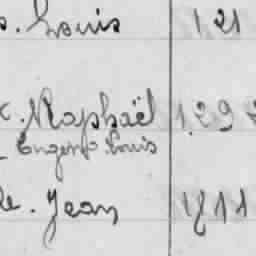 s. Louis 121
x. Raphaël 1292
Eugene Louis
le. Jean 1811